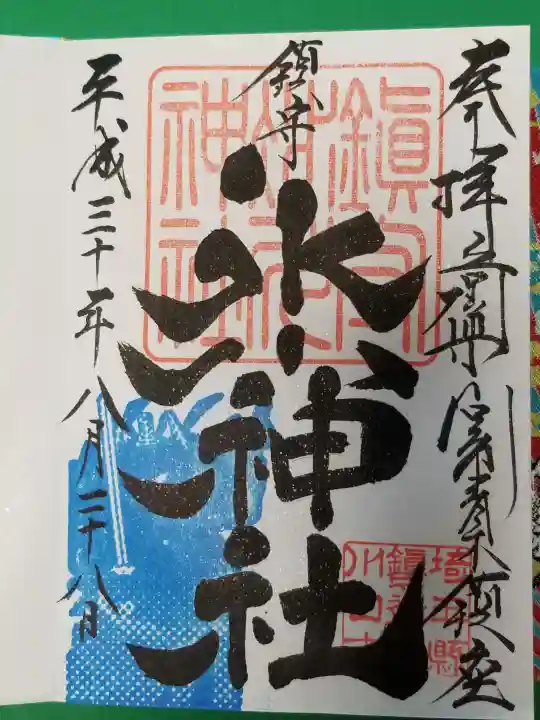 奉拝
青木鎮座
鎮守
氷川神社
平成三十年八月二十八日
鎮守氷川神社
埼玉縣川口市鎮座